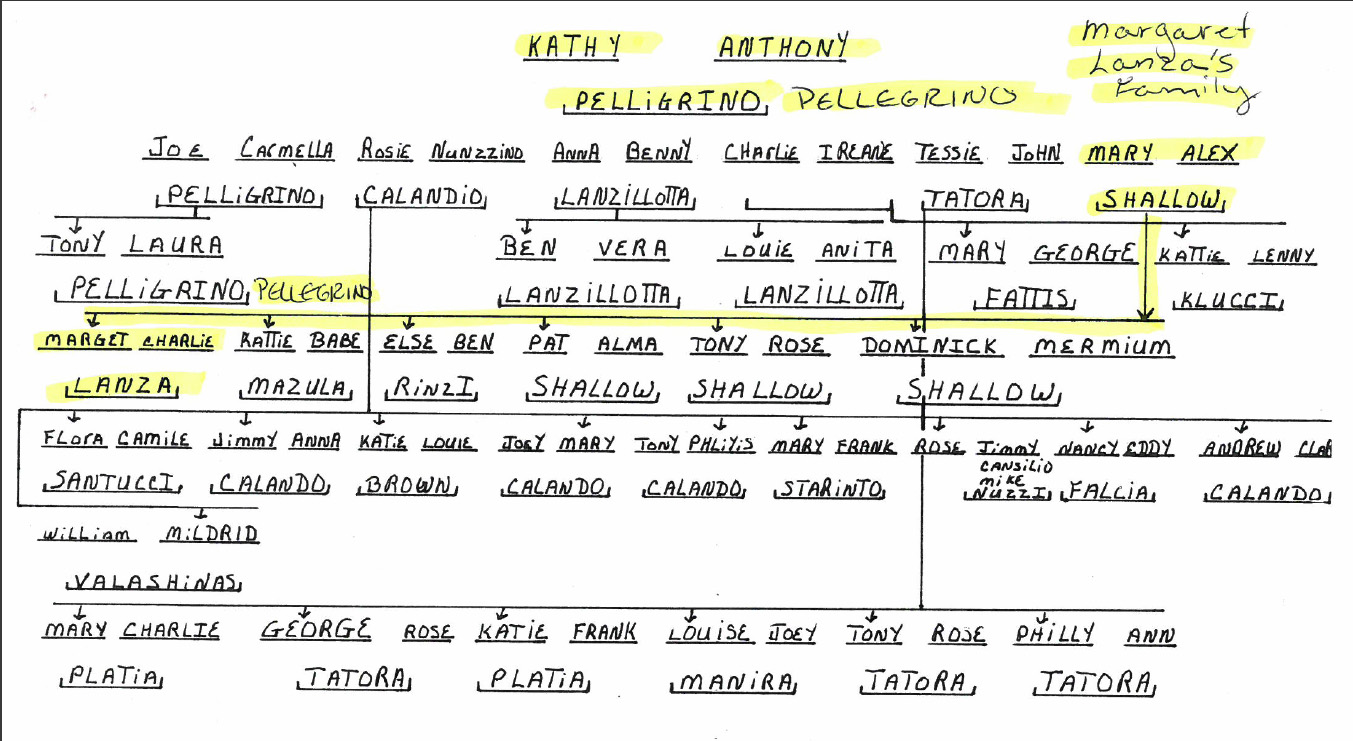 KATHY ANTHONY
Margaret
Lanza's
Family
PELLiGRINO PELLEGRINO
JOE CARMELLA ROSiE NUNZZiNO ANNA BENNY CHARLiE IREANE TESSiE JOHN MARY ALEX
PELLiGRINO CALANDiO LANZILLOTTA TATORA SHALLOW
TONY LAURA BEN VERA LOUiE ANiTA MARY GEORGE KATTiE LENNY
PELLiGRINO PELLEGRINO LANZiLLOTTA LANZiLLOTTA FATTIS KLUCCI
MARGET CHARLiE KATTiE BABE ELSE BEN PAT ALMA TONY ROSE DOMINICK MERMIUM
LANZA MAZULA RiNZI SHALLOW SHALLOW SHALLOW
FLORA CAMiLE JiMMY ANNA KATiE LOUiE JOEY MARY TONY PHLiYiS MARY FRANK ROSE Jimmy NANCY EDDY ANDREW CLAR
CANSiLIO
MiKE
SANTUCCI CALANDO BROWN CALANDO CALANDO STARiNTO NUZZI FALCiA CALANDO
WiLLiam MiLDRID
VALASHiNAS
MARY CHARLIE GEORGE ROSE KATiE FRANK LOUiSE JOEY TONY ROSE PHiLLY ANN
PLATiA TATORA PLATiA MANiRA TATORA TATORA